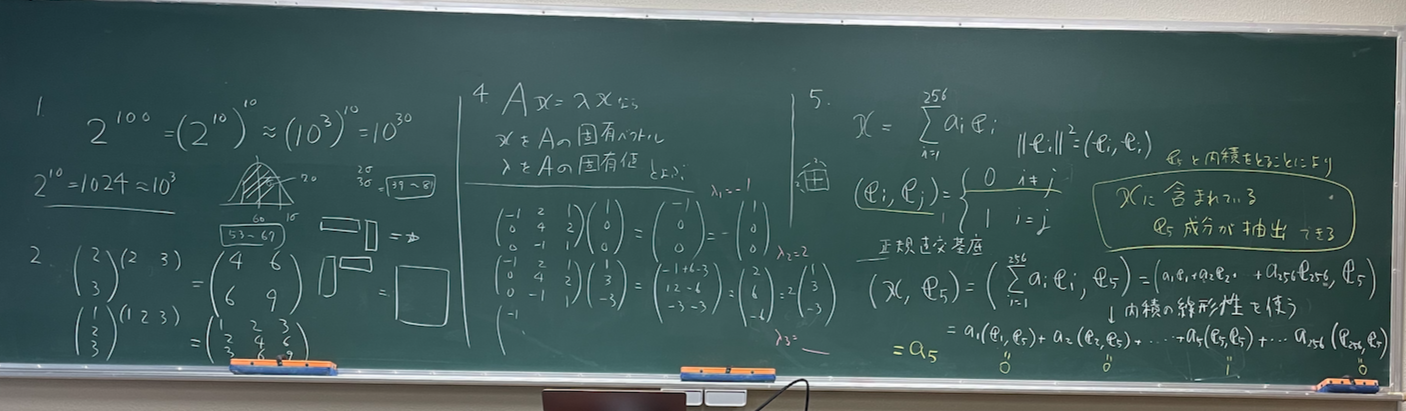 1.
2^100 = (2^10)^10 ≈ (10^3)^10 = 10^30
2^10 = 1024 ≈ 10^3
20
60 1σ
53~67
2σ
3σ =
2.
(2 3)^T (2 3) = (4 6; 6 9)
(1 2 3)^T (1 2 3) = (1 2 3; 2 4 6; 3 6 9)
4. Ax = λx なら
xをAの固有ベクトル
λをAの固有値という
λ1=-1
(-1 2 1; 0 4 2; 0 -1 1)(1; 0; 0) = (-1; 0; 0) = -(1; 0; 0)
λ2=2
(-1 2 1; 0 4 2; 0 -1 1)(1; 3; -3) = (-1+6-3; 12-6; -3-3) = (2; 6; -6) = 2(1; 3; -3)
(-1
λ3=
5.
x = Σ_{i=1}^{256} a_i e_i
||e_i||^2 = (e_i, e_i)
(e_i, e_j) = { 0 i≠j
1 i=j
正規直交基底
e_5 と内積をとることにより
xに含まれている
e_5 成分が抽出できる
(x, e_5) = (Σ_{i=1}^{256} a_i e_i, e_5) = (a_1e_1+a_2e_2+ ‥ +a_256e_256, e_5)
↓内積の線形性を使う
= a_1(e_1, e_5) + a_2(e_2, e_5) + ‥‥ + a_5(e_5, e_5) + ‥ a_256(e_256, e_5)
0 0 1 0
= a_5